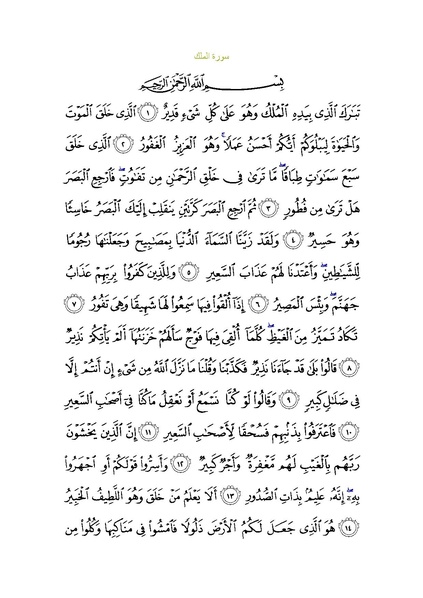 سورة الملك
بِسْمِ اللَّهِ الرَّحْمَٰنِ الرَّحِيمِ
تَبَٰرَكَ ٱلَّذِى بِيَدِهِ ٱلْمُلْكُ وَهُوَ عَلَىٰ كُلِّ شَىْءٍ قَدِيرٌ ١ ٱلَّذِى خَلَقَ ٱلْمَوْتَ
وَٱلْحَيَوٰةَ لِيَبْلُوَكُمْ أَيُّكُمْ أَحْسَنُ عَمَلًا ۚ وَهُوَ ٱلْعَزِيزُ ٱلْغَفُورُ ٢ ٱلَّذِى خَلَقَ
سَبْعَ سَمَٰوَٰتٍ طِبَاقًا ۖ مَّا تَرَىٰ فِى خَلْقِ ٱلرَّحْمَٰنِ مِن تَفَٰوُتٍ ۖ فَٱرْجِعِ ٱلْبَصَرَ
هَلْ تَرَىٰ مِن فُطُورٍ ٣ ثُمَّ ٱرْجِعِ ٱلْبَصَرَ كَرَّتَيْنِ يَنقَلِبْ إِلَيْكَ ٱلْبَصَرُ خَاسِئًا
وَهُوَ حَسِيرٌ ٤ وَلَقَدْ زَيَّنَّا ٱلسَّمَآءَ ٱلدُّنْيَا بِمَصَٰبِيحَ وَجَعَلْنَٰهَا رُجُومًا
لِّلشَّيَٰطِينِ ۖ وَأَعْتَدْنَا لَهُمْ عَذَابَ ٱلسَّعِيرِ ٥ وَلِلَّذِينَ كَفَرُوا۟ بِرَبِّهِمْ عَذَابُ
جَهَنَّمَ ۖ وَبِئْسَ ٱلْمَصِيرُ ٦ إِذَآ أُلْقُوا۟ فِيهَا سَمِعُوا۟ لَهَا شَهِيقًا وَهِىَ تَفُورُ ٧
تَكَادُ تَمَيَّزُ مِنَ ٱلْغَيْظِ ۖ كُلَّمَآ أُلْقِىَ فِيهَا فَوْجٌ سَأَلَهُمْ خَزَنَتُهَآ أَلَمْ يَأْتِكُمْ نَذِيرٌ
٨ قَالُوا۟ بَلَىٰ قَدْ جَآءَنَا نَذِيرٌ فَكَذَّبْنَا وَقُلْنَا مَا نَزَّلَ ٱللَّهُ مِن شَىْءٍ إِنْ أَنتُمْ إِلَّا
فِى ضَلَٰلٍ كَبِيرٍ ٩ وَقَالُوا۟ لَوْ كُنَّا نَسْمَعُ أَوْ نَعْقِلُ مَا كُنَّا فِىٓ أَصْحَٰبِ ٱلسَّعِيرِ
١٠ فَٱعْتَرَفُوا۟ بِذَنۢبِهِمْ فَسُحْقًا لِّأَصْحَٰبِ ٱلسَّعِيرِ ١١ إِنَّ ٱلَّذِينَ يَخْشَوْنَ
رَبَّهُم بِٱلْغَيْبِ لَهُم مَّغْفِرَةٌ وَأَجْرٌ كَبِيرٌ ١٢ وَأَسِرُّوا۟ قَوْلَكُمْ أَوِ ٱجْهَرُوا۟
بِهِۦٓ ۖ إِنَّهُۥ عَلِيمٌۢ بِذَاتِ ٱلصُّدُورِ ١٣ أَلَا يَعْلَمُ مَنْ خَلَقَ وَهُوَ ٱللَّطِيفُ ٱلْخَبِيرُ
١٤ هُوَ ٱلَّذِى جَعَلَ لَكُمُ ٱلْأَرْضَ ذَلُولًا فَٱمْشُوا۟ فِى مَنَاكِبِهَا وَكُلُوا۟ مِن